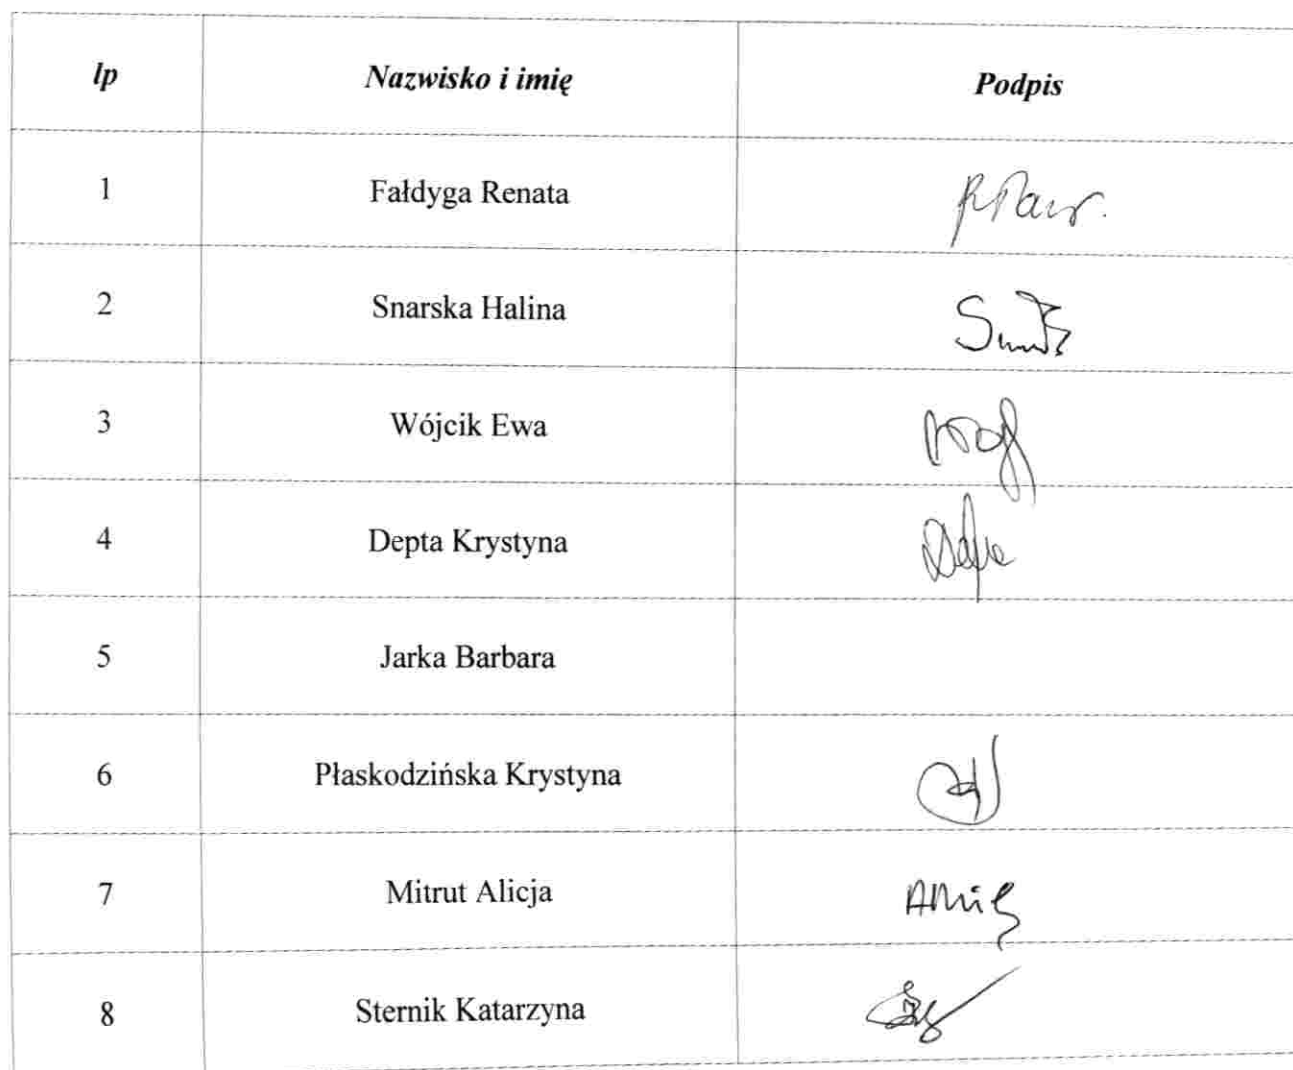 lp Nazwisko i imię Podpis
1 Fałdyga Renata
2 Snarska Halina
3 Wójcik Ewa
4 Depta Krystyna
5 Jarka Barbara
6 Płaskodzińska Krystyna
7 Mitrut Alicja
8 Sternik Katarzyna